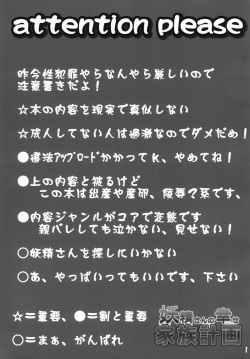 attention please
昨今性犯罪やらなんやら厳しいので
注意書きだよ！
☆本の内容を現実で真似しない
☆成人してない人は過激なのでダメだめ！
●違法アップロードかかってｋ、やめてね！
●上の内容と被るけど
この本は出産や産卵、陵辱？本です。
●内容ジャンルがコアで変態です
親バレしても泣かない、見せない！
○妖精さんを探しにいかない
○あ、やっぱいってもいいです、下さい
☆＝重要、●＝割と重要
○＝まぁ、がんばれ
家族計画
1